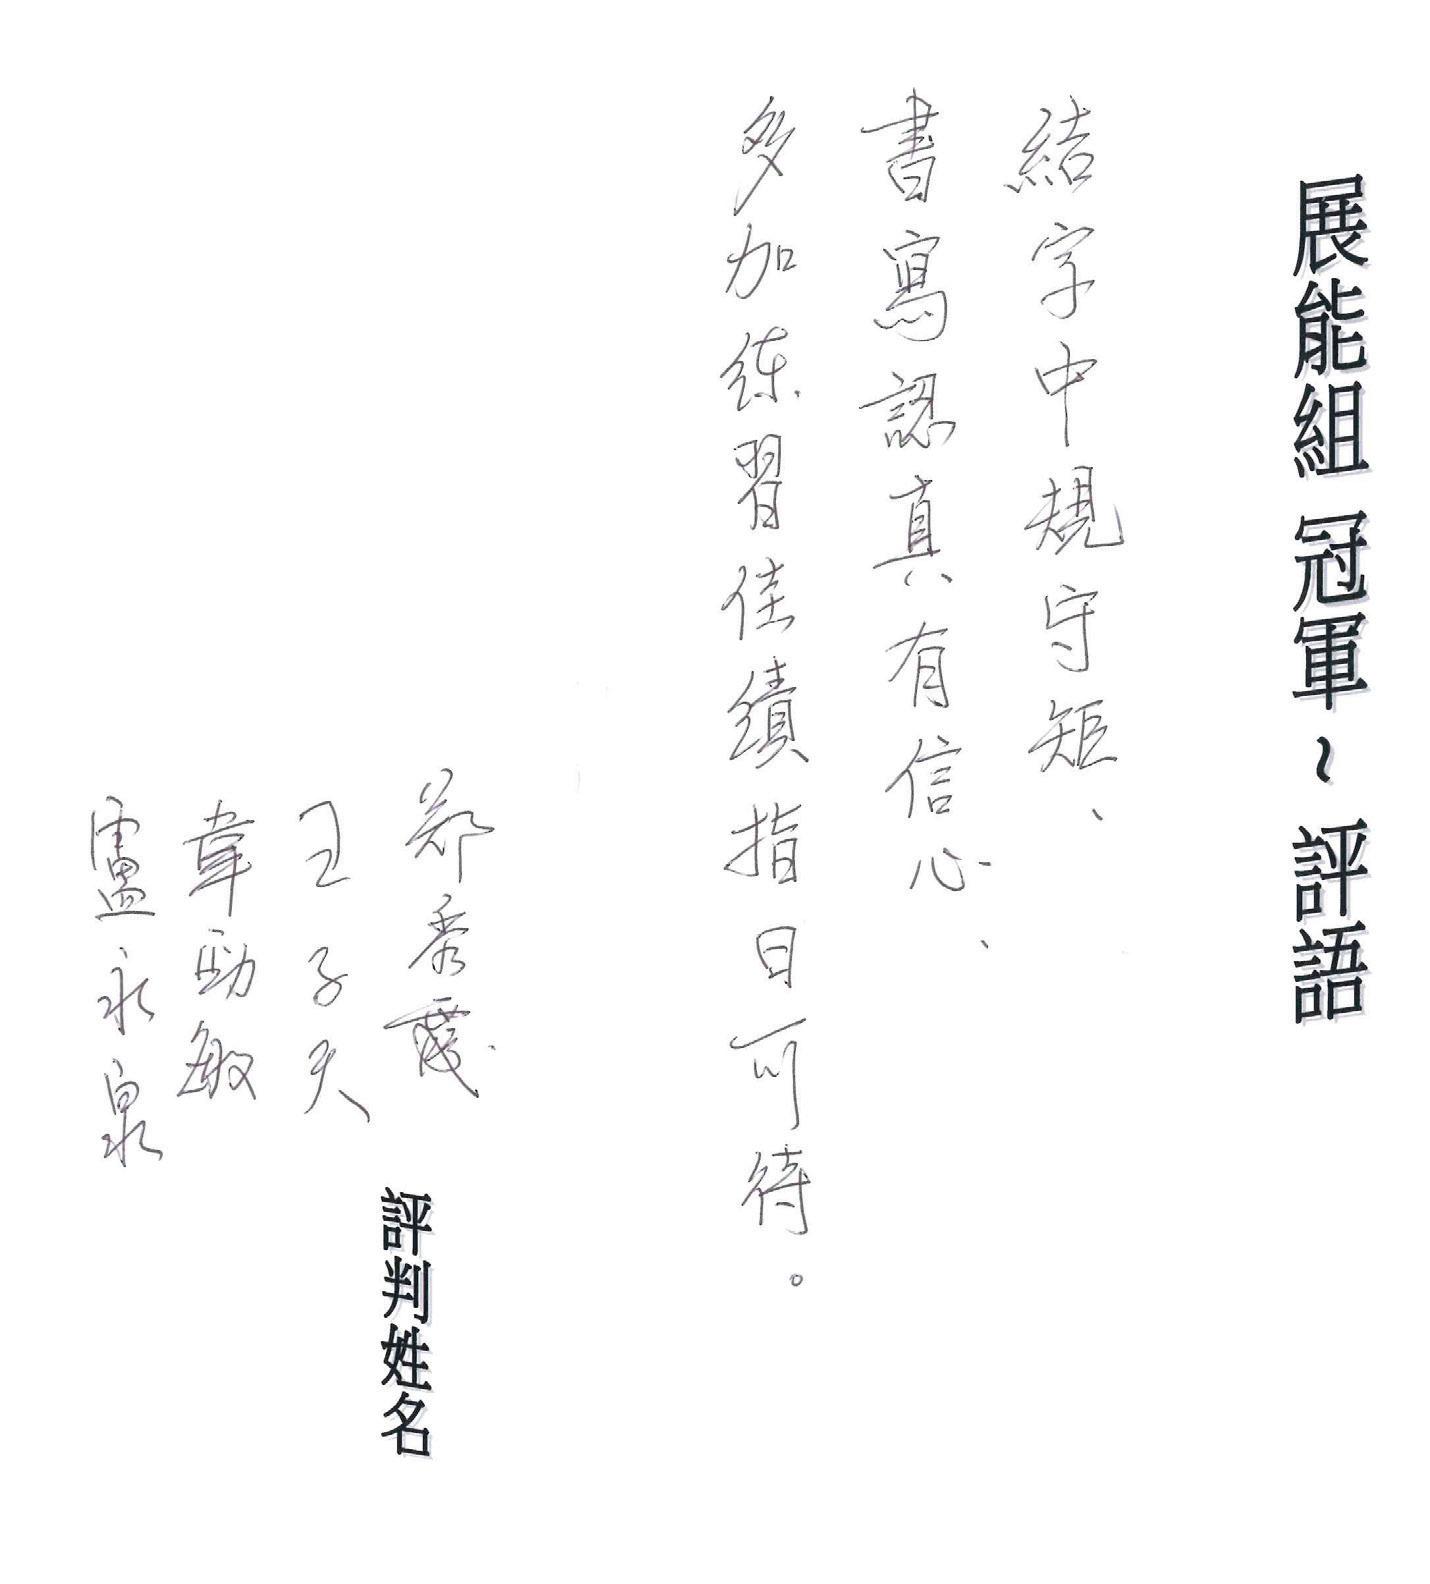 展能組 冠軍~評語
結字中規守矩、
書寫認真有信心、
多加練習佳績指日可待。
評判姓名
王子天
韋勁敏
盧永泉